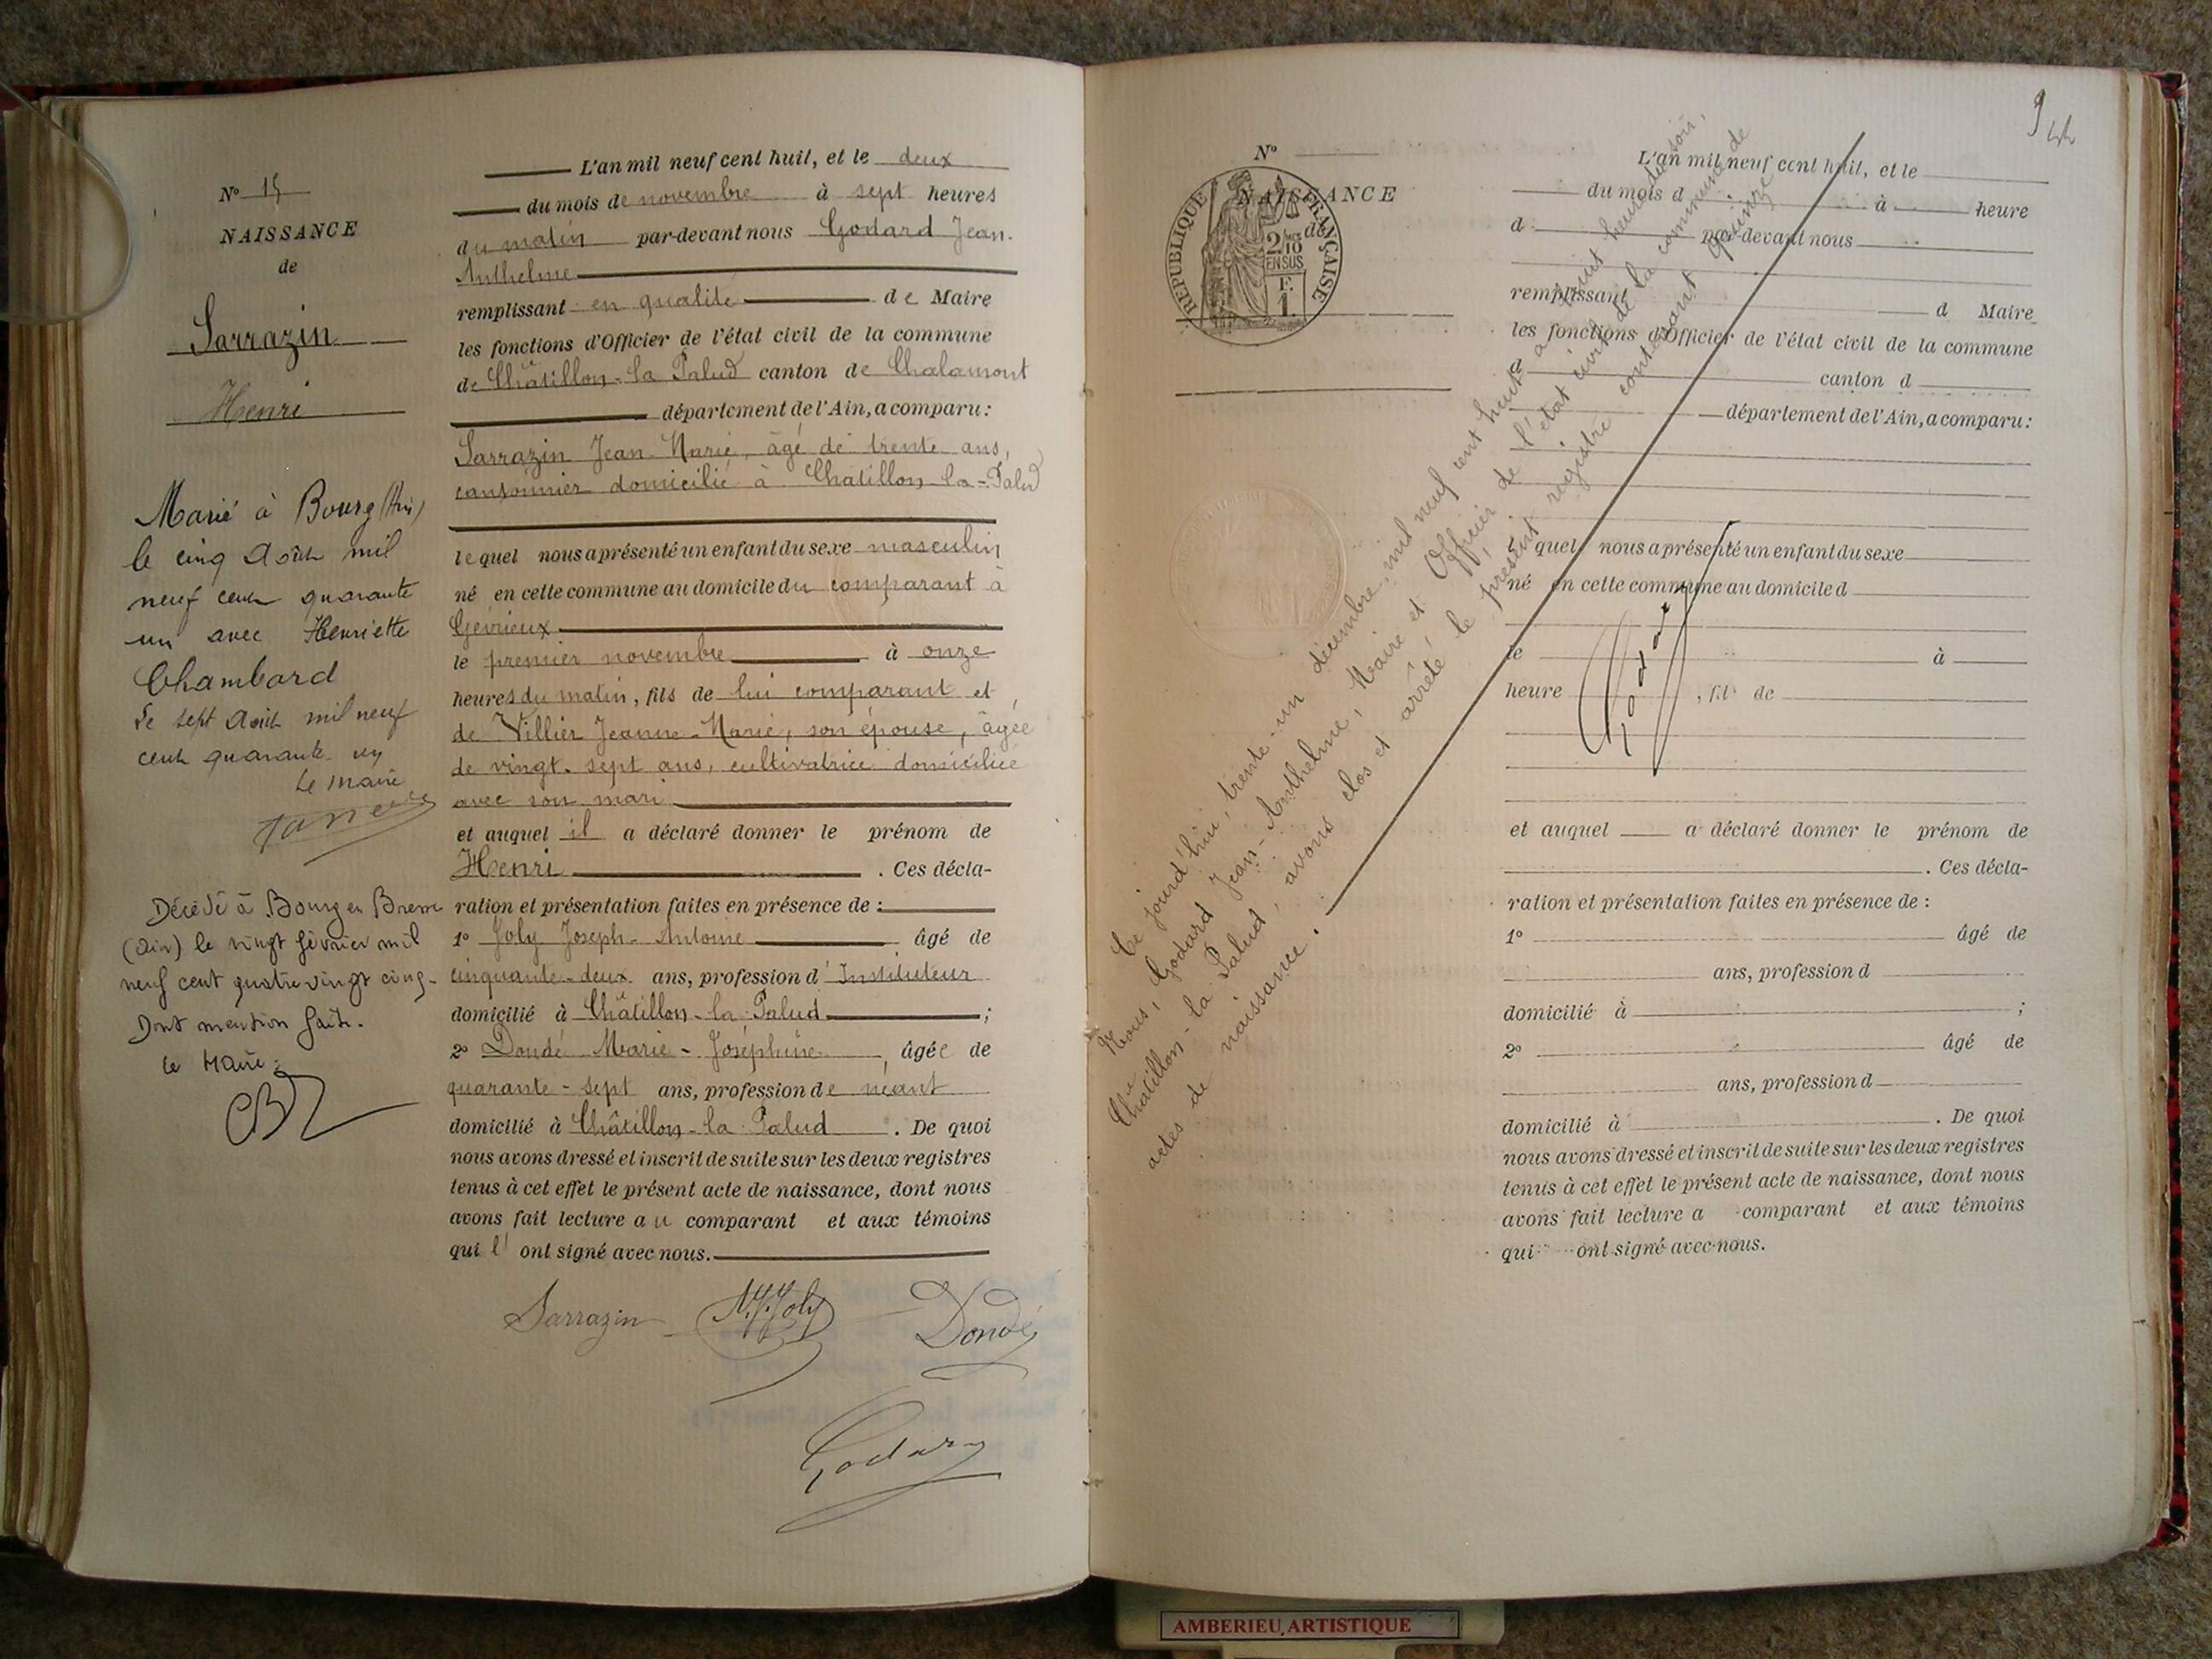 N° 15
NAISSANCE
de
Sarrazin
Henri
Marié à Bourg (Ain)
le cinq Août mil
neuf cent quarante
un avec Henriette
Chambard
Le sept Août mil neuf
cent quarante un
Le Maire
Décédé à Bourg en Bresse
(Ain) le vingt février mil
neuf cent quatre vingt cinq.
Dont mention faite.
Le Maire:
L'an mil neuf cent huit, et le deux
du mois de novembre à sept heures
du matin par-devant nous Godard Jean-
Anthelme
remplissant en qualité de Maire
les fonctions d'Officier de l'état civil de la commune
de Châtillon-la-Palud canton de Chalamont
département de l'Ain, a comparu:
Sarrazin Jean-Marie, âgé de trente ans,
cantonnier domicilié à Chatillon-la-Palud
lequel nous a présenté un enfant du sexe masculin
né en cette commune au domicile du comparant à
Gévrieux
le premier novembre à onze
heures du matin, fils de lui comparant et
de Villier Jeanne-Marie, son épouse, âgée
de vingt-sept ans, cultivatrice domiciliée
avec son mari
et auquel il a déclaré donner le prénom de
Henri . Ces décla-
ration et présentation faites en présence de :
1° Joly Joseph-Antoine âgé de
cinquante-deux ans, profession d'Instituteur
domicilié à Châtillon-la-Palud ;
2° Dondé Marie-Joséphine, âgée de
quarante-sept ans, profession de néant
domicilié à Châtillon-la-Palud . De quoi
nous avons dressé et inscrit de suite sur les deux registres
tenus à cet effet le présent acte de naissance, dont nous
avons fait lecture au comparant et aux témoins
qui l' ont signé avec nous.
Sarrazin Joly Dondé
Godard
9
N°
NAISSANCE
de
RÉPUBLIQUE FRANÇAISE
2/10
EN SUS
F.
1.
L'an mil neuf cent huit, et le
du mois d à heure
d par-devant nous
remplissant d Maire
les fonctions d'Officier de l'état civil de la commune
d canton d
département de l'Ain, a comparu:
quel nous a présenté un enfant du sexe
né en cette commune au domicile d
le à
heure , fil de
et auquel a déclaré donner le prénom de
. Ces décla-
ration et présentation faites en présence de :
1° âgé de
ans, profession d
domicilié à ;
2° âgé de
ans, profession d
domicilié à . De quoi
nous avons dressé et inscrit de suite sur les deux registres
tenus à cet effet le présent acte de naissance, dont nous
avons fait lecture a comparant et aux témoins
qui ont signé avec nous.
Ce jourd'hui, trente-un décembre mil neuf cent huit à huit heures du soir,
Nous, Godard Jean-Anthelme, Maire et Officier de l'état civil de la commune de
Châtillon-la-Palud, avons clos et arrêté le présent registre contenant quinze
actes de naissance.
Godard
AMBERIEU ARTISTIQUE